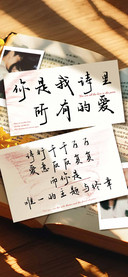 你是我诗里
所有的爱
诗行千千万万
爱意反反复复
而你是
唯一的主题与终章